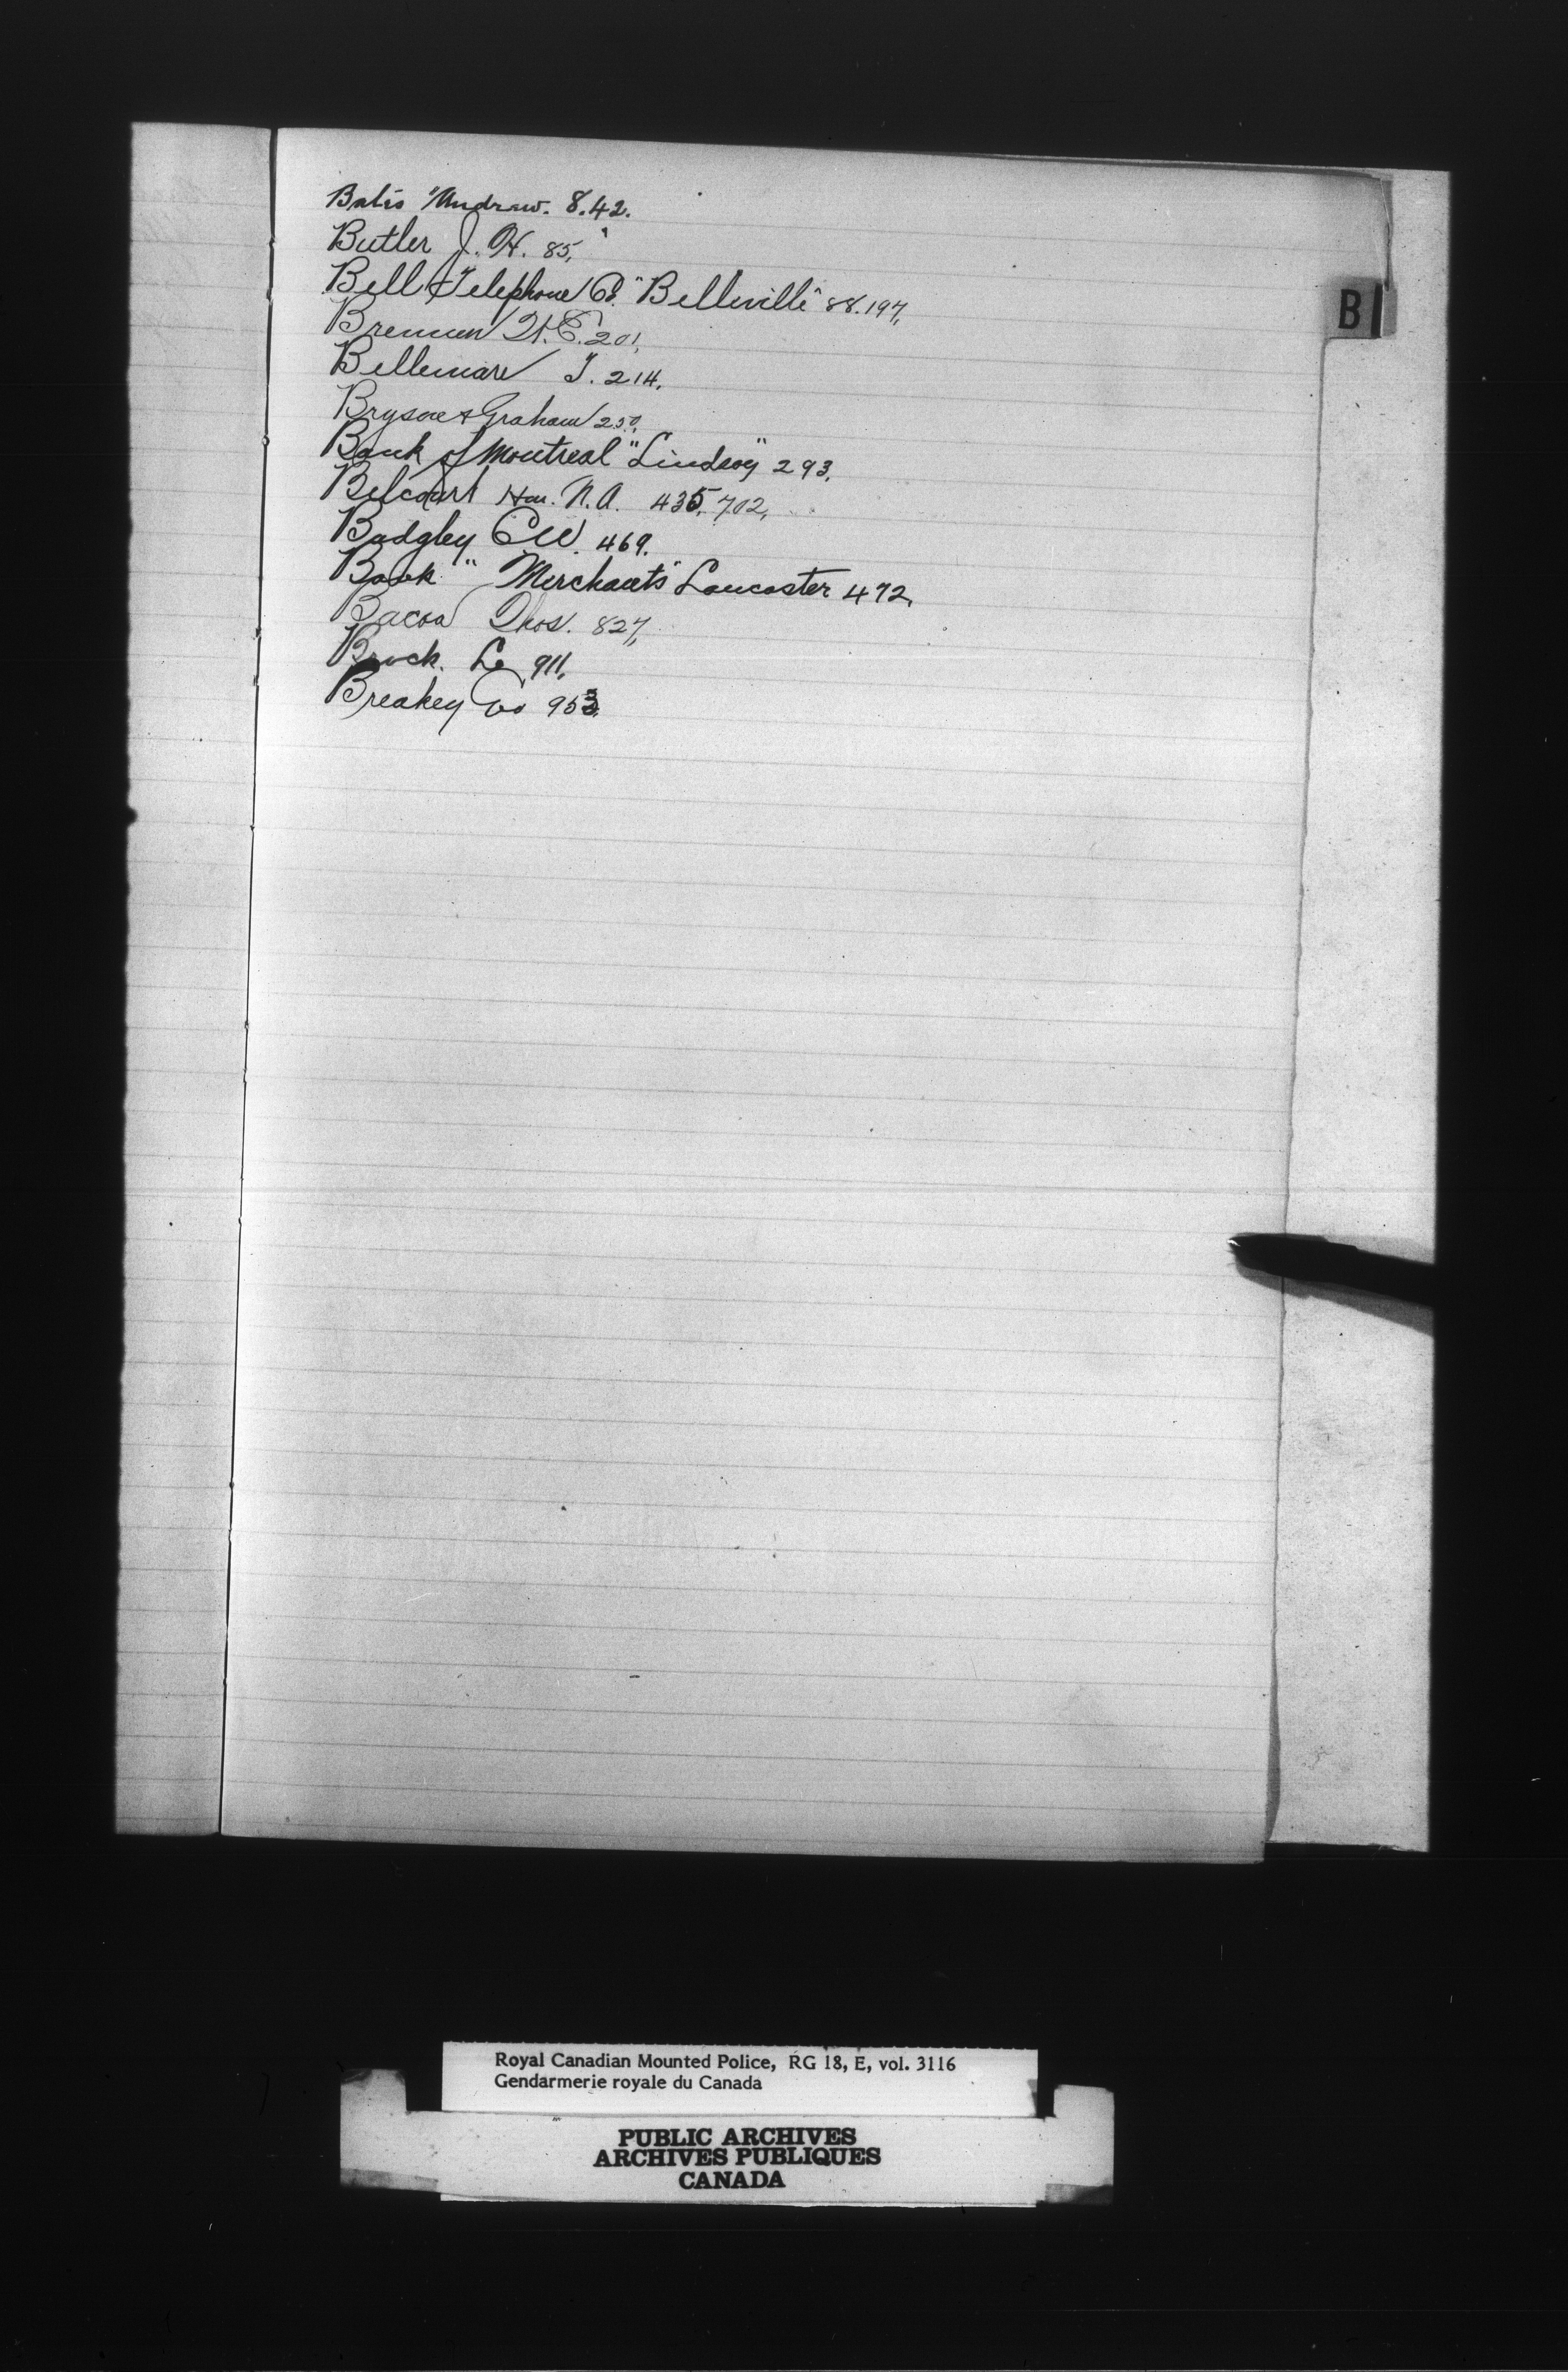 Batis "Andrew. 8.42.
Butler J. H. 85,
Bell Telephone Co. "Belleville" 88.197,
B
Brennen W. E. 201,
Bellemare J. 214,
Bryson & Graham 250,
Bank of Montreal "Lindsay" 293,
Belcourt Hon. N.A. 435, 702,
Badgley C W. 469.
Bank " Merchants" Lancaster 472,
Bacon Thos. 827,
Brock. 911,
Breakey Co 953
Royal Canadian Mounted Police, RG 18, E, vol. 3116
Gendarmerie royale du Canada
PUBLIC ARCHIVES
ARCHIVES PUBLIQUES
CANADA